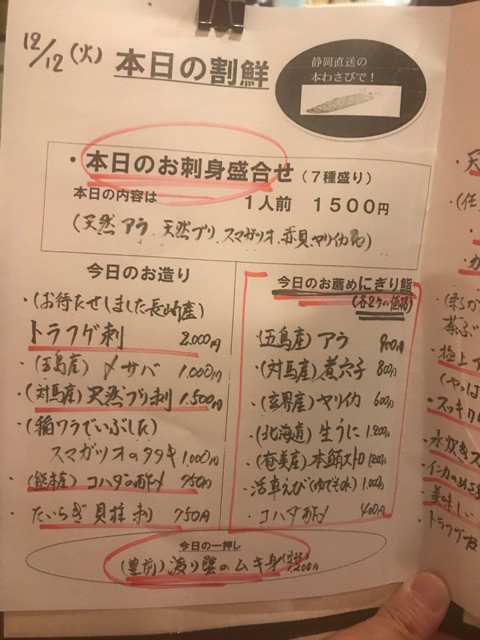 12/12(火)
本日の割鮮
静岡直送の
本わさびで!
・本日のお刺身盛合せ(7種盛り)
本日の内容は 1人前 1500円
(天然アラ、天然ブリ、スマガツオ、赤貝、ヤリイカ他)
今日のお造り
・(お待たせしました長崎産)
トラフグ刺 2,000円
・(五島産)〆サバ 1,000円
・(対馬産)天然ブリ刺 1,500円
・(稲ワラでいぶした)
スマガツオのタタキ 1,000円
・(熊本産)コハダの酢〆 750円
・たいらぎ貝柱刺 750円
今日のお薦めにぎり鮨
(各2ケの価格)
・(五島産)アラ 900円
・(対馬産)煮穴子 800円
・(玄界産)ヤリイカ 600円
・(北海道)生うに 1,200円
・(奄美産)本鮪大トロ
・活車えび(ゆでもOK) 1,000円
・コハダ酢〆 400円
今日の一押し
(豊前)渡り蟹のムキ身 1,200円
・極上
(やっぱ
・スッキリ
・水炊きス
・インカのめざ
・美味し
・トラフグ